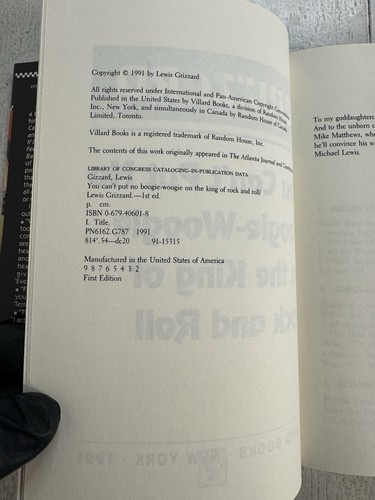 Copyright © 1991 by Lewis Grizzard
All rights reserved under International and Pan-American Copyright
Published in the United States by Villard Books, a division of Random
Inc., New York, and simultaneously in Canada by Random House of Canada
Limited, Toronto.
Villard Books is a registered trademark of Random House, Inc.
The contents of this work originally appeared in The Atlanta Journal and
LIBRARY OF CONGRESS CATALOGING-IN-PUBLICATION DATA
Gizzard, Lewis
You can't put no boogie-woogie on the king of rock and roll/
Lewis Grizzard.—1st ed.
p. cm.
ISBN 0-679-40601-8
I. Title.
PN6162.G787 1991
814'.54—dc20 91-15315
Manufactured in the United States of America
9 8 7 6 5 4 3 2
First Edition
To my goddaughters,
And to the unborn
Mike Matthews, who
he'll convince his
Michael Lewis.